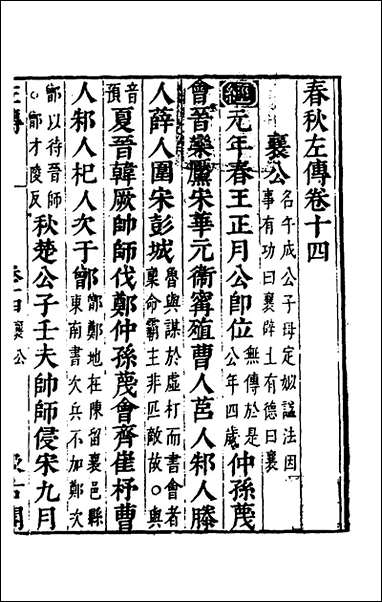 春秋左傳卷十四
襄公 名午成公子母定姒謚法因
事有功曰襄辟土有德曰襄
經元年春王正月公即位 無傳於是
公年四歲 仲孫蔑
會晉欒黶宋華元衛甯殖曹人莒人邾人滕
人薛人圍宋彭城 魯與謀於虛朾而書會者
稟命霸主非匹敵故○與
音
預 夏晉韓厥帥師伐鄭仲孫蔑會齊崔杼曹
人邾人杞人次于鄫 鄫鄭地在陳留襄邑縣
東南書次兵不加鄭次
鄫以待晉師
○鄫才陵反 秋楚公子壬夫帥師侵宋九月